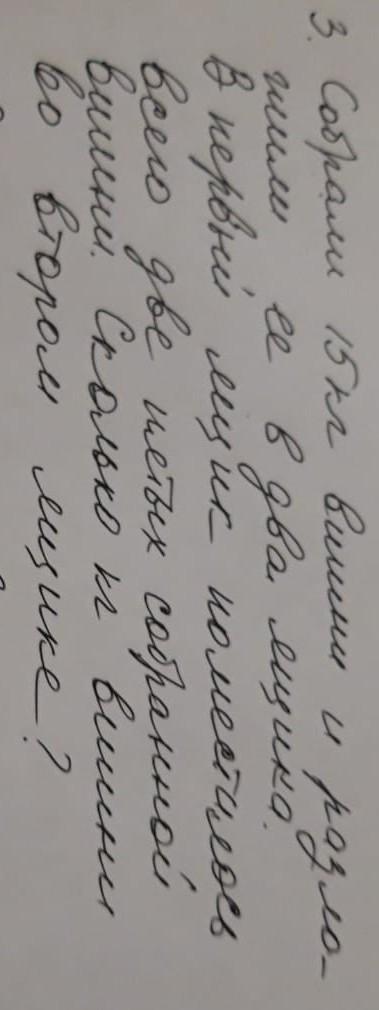 3. Собрали 15 кг вишни и разло-
жили ее в два ящика.
В первый ящик поместилось
всего две пятых собранной
вишни. Сколько кг вишни
во втором ящике?